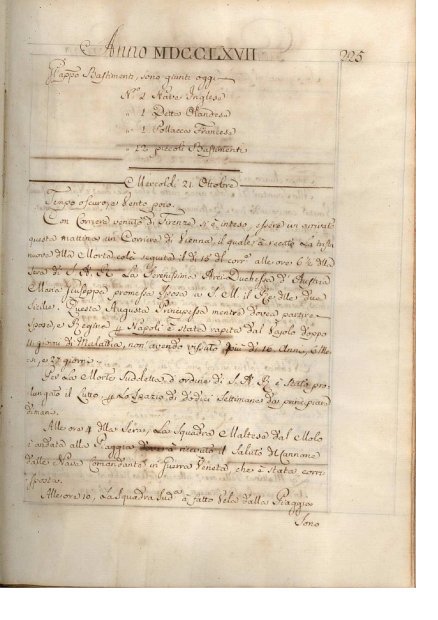 Anno MDCCLXVII
225
Bastimenti, sono giunti oggi
N.º 2 Nave Inglese
" 1 Detto Olandese
" 1 Pollacca Francese
" 12 piccoli Bastimenti
Mercoldì 21 Ottobre
Tempo oscuro, e Vento poco.
Con Corriere venuto di Firenze si è inteso, essere ivi arrivato
questa mattina un Corriere di Vienna, il quale à recato la triste
nuova della Morte colà seguita il dì 15 del corr.e alle ore 6 ½ della
Sera di S. A. R. La Serenissima Arci Duchessa d' Austria
Maria Giuseppa promessa Sposa a S. M. il Rè delle due
Sicilie. Questa Augusta Principessa mentre dovea partire
Sposa, e Regina Napoli è stata rapita dal Vajolo doppo
giorni di Malattia, non avendo vissuto più di 16 Anni,
e 27 giorni.
Per La Morte Sudaletta d' ordine di S. A. R. è stato pro
lungato il Lutto Lo Spazio di dodici Settimane da principiare
dimane.
Alle ore 4 della Sera, La Squadra Maltese dal Molo
andata alla Piaggia à ricevuto il Saluto di Cannone
dalla Nave Comandante in Guerra Veneta che è stata corri
sposta.
Alle ore 10, La Squadra Sud.a à fatto Vela dalla Piaggia
Sono